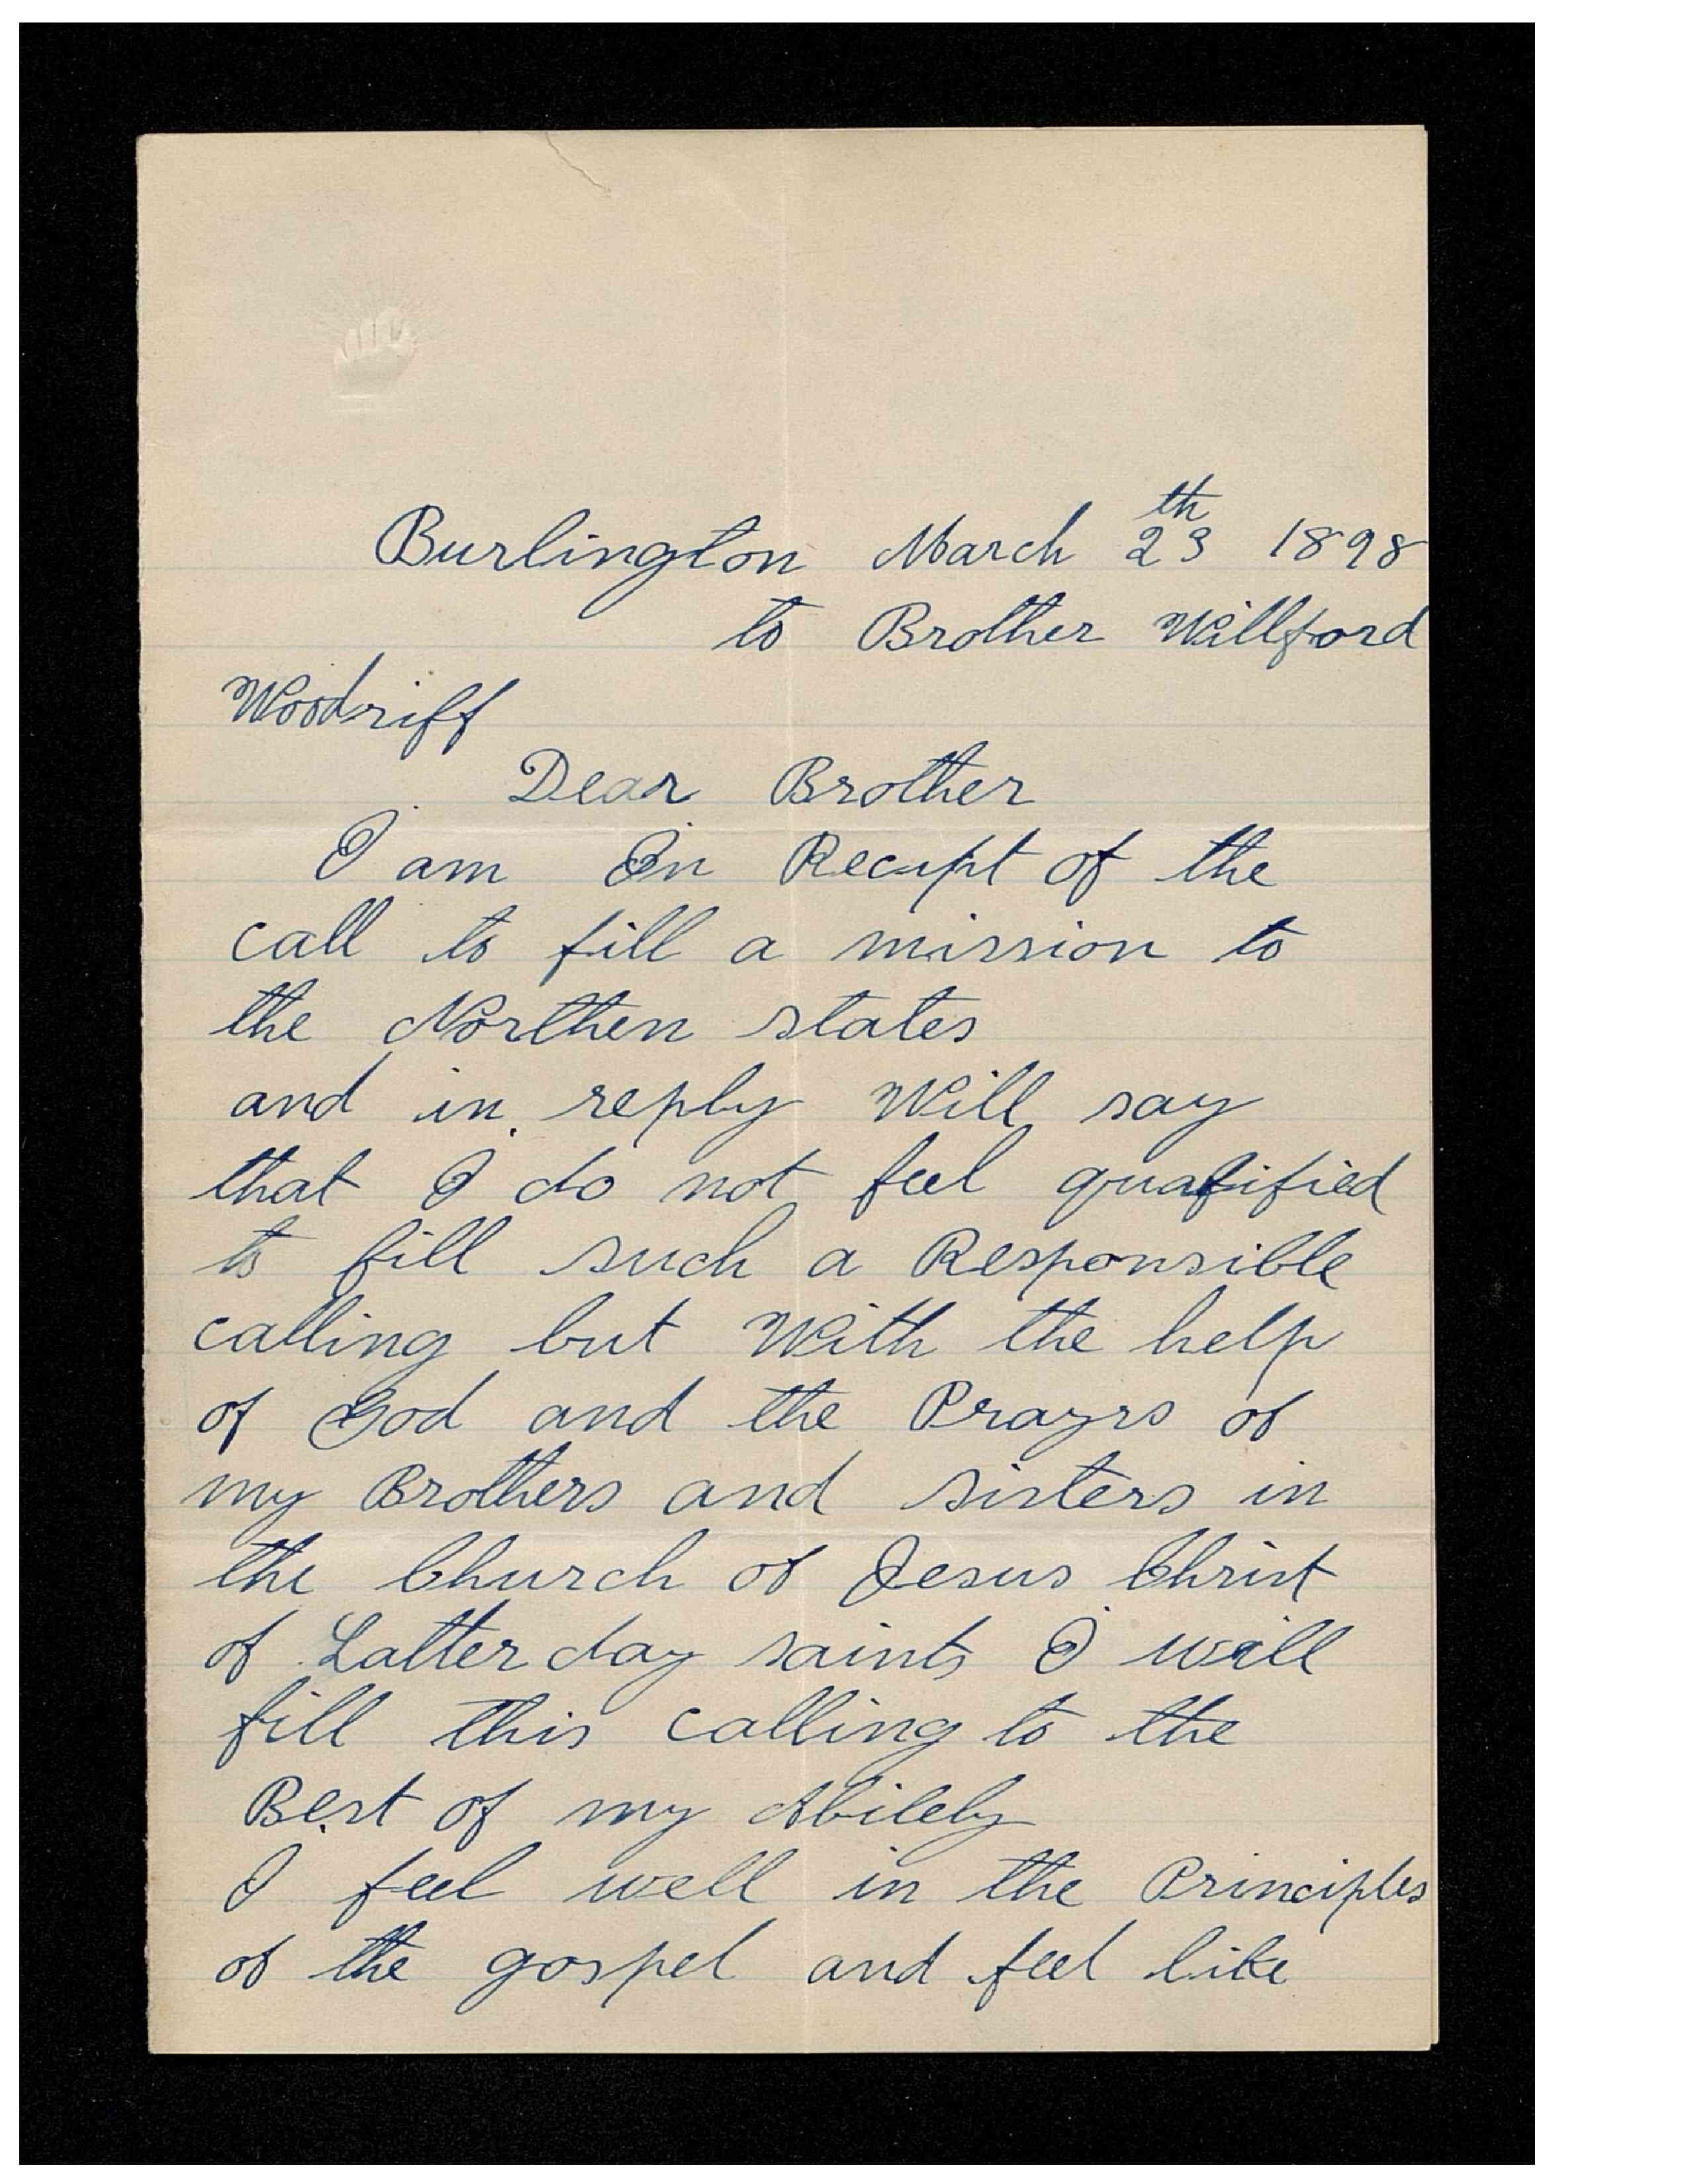 Burlington March 23th 1898
to Brother Willford
Woodriff
Dear Brother
I am In Recept of the
call to fill a mission to
the Northen states
and in reply Will say
that I do not feel qualified
to fill such a Responsible
calling but With the help
of God and the Prayrs of
my Brothers and sisters in
the Church of Jesus Christ
of Latter day saints I will
fill this calling to the
Best of my Abilety
I feel well in the Principles
of the gospel and feel like